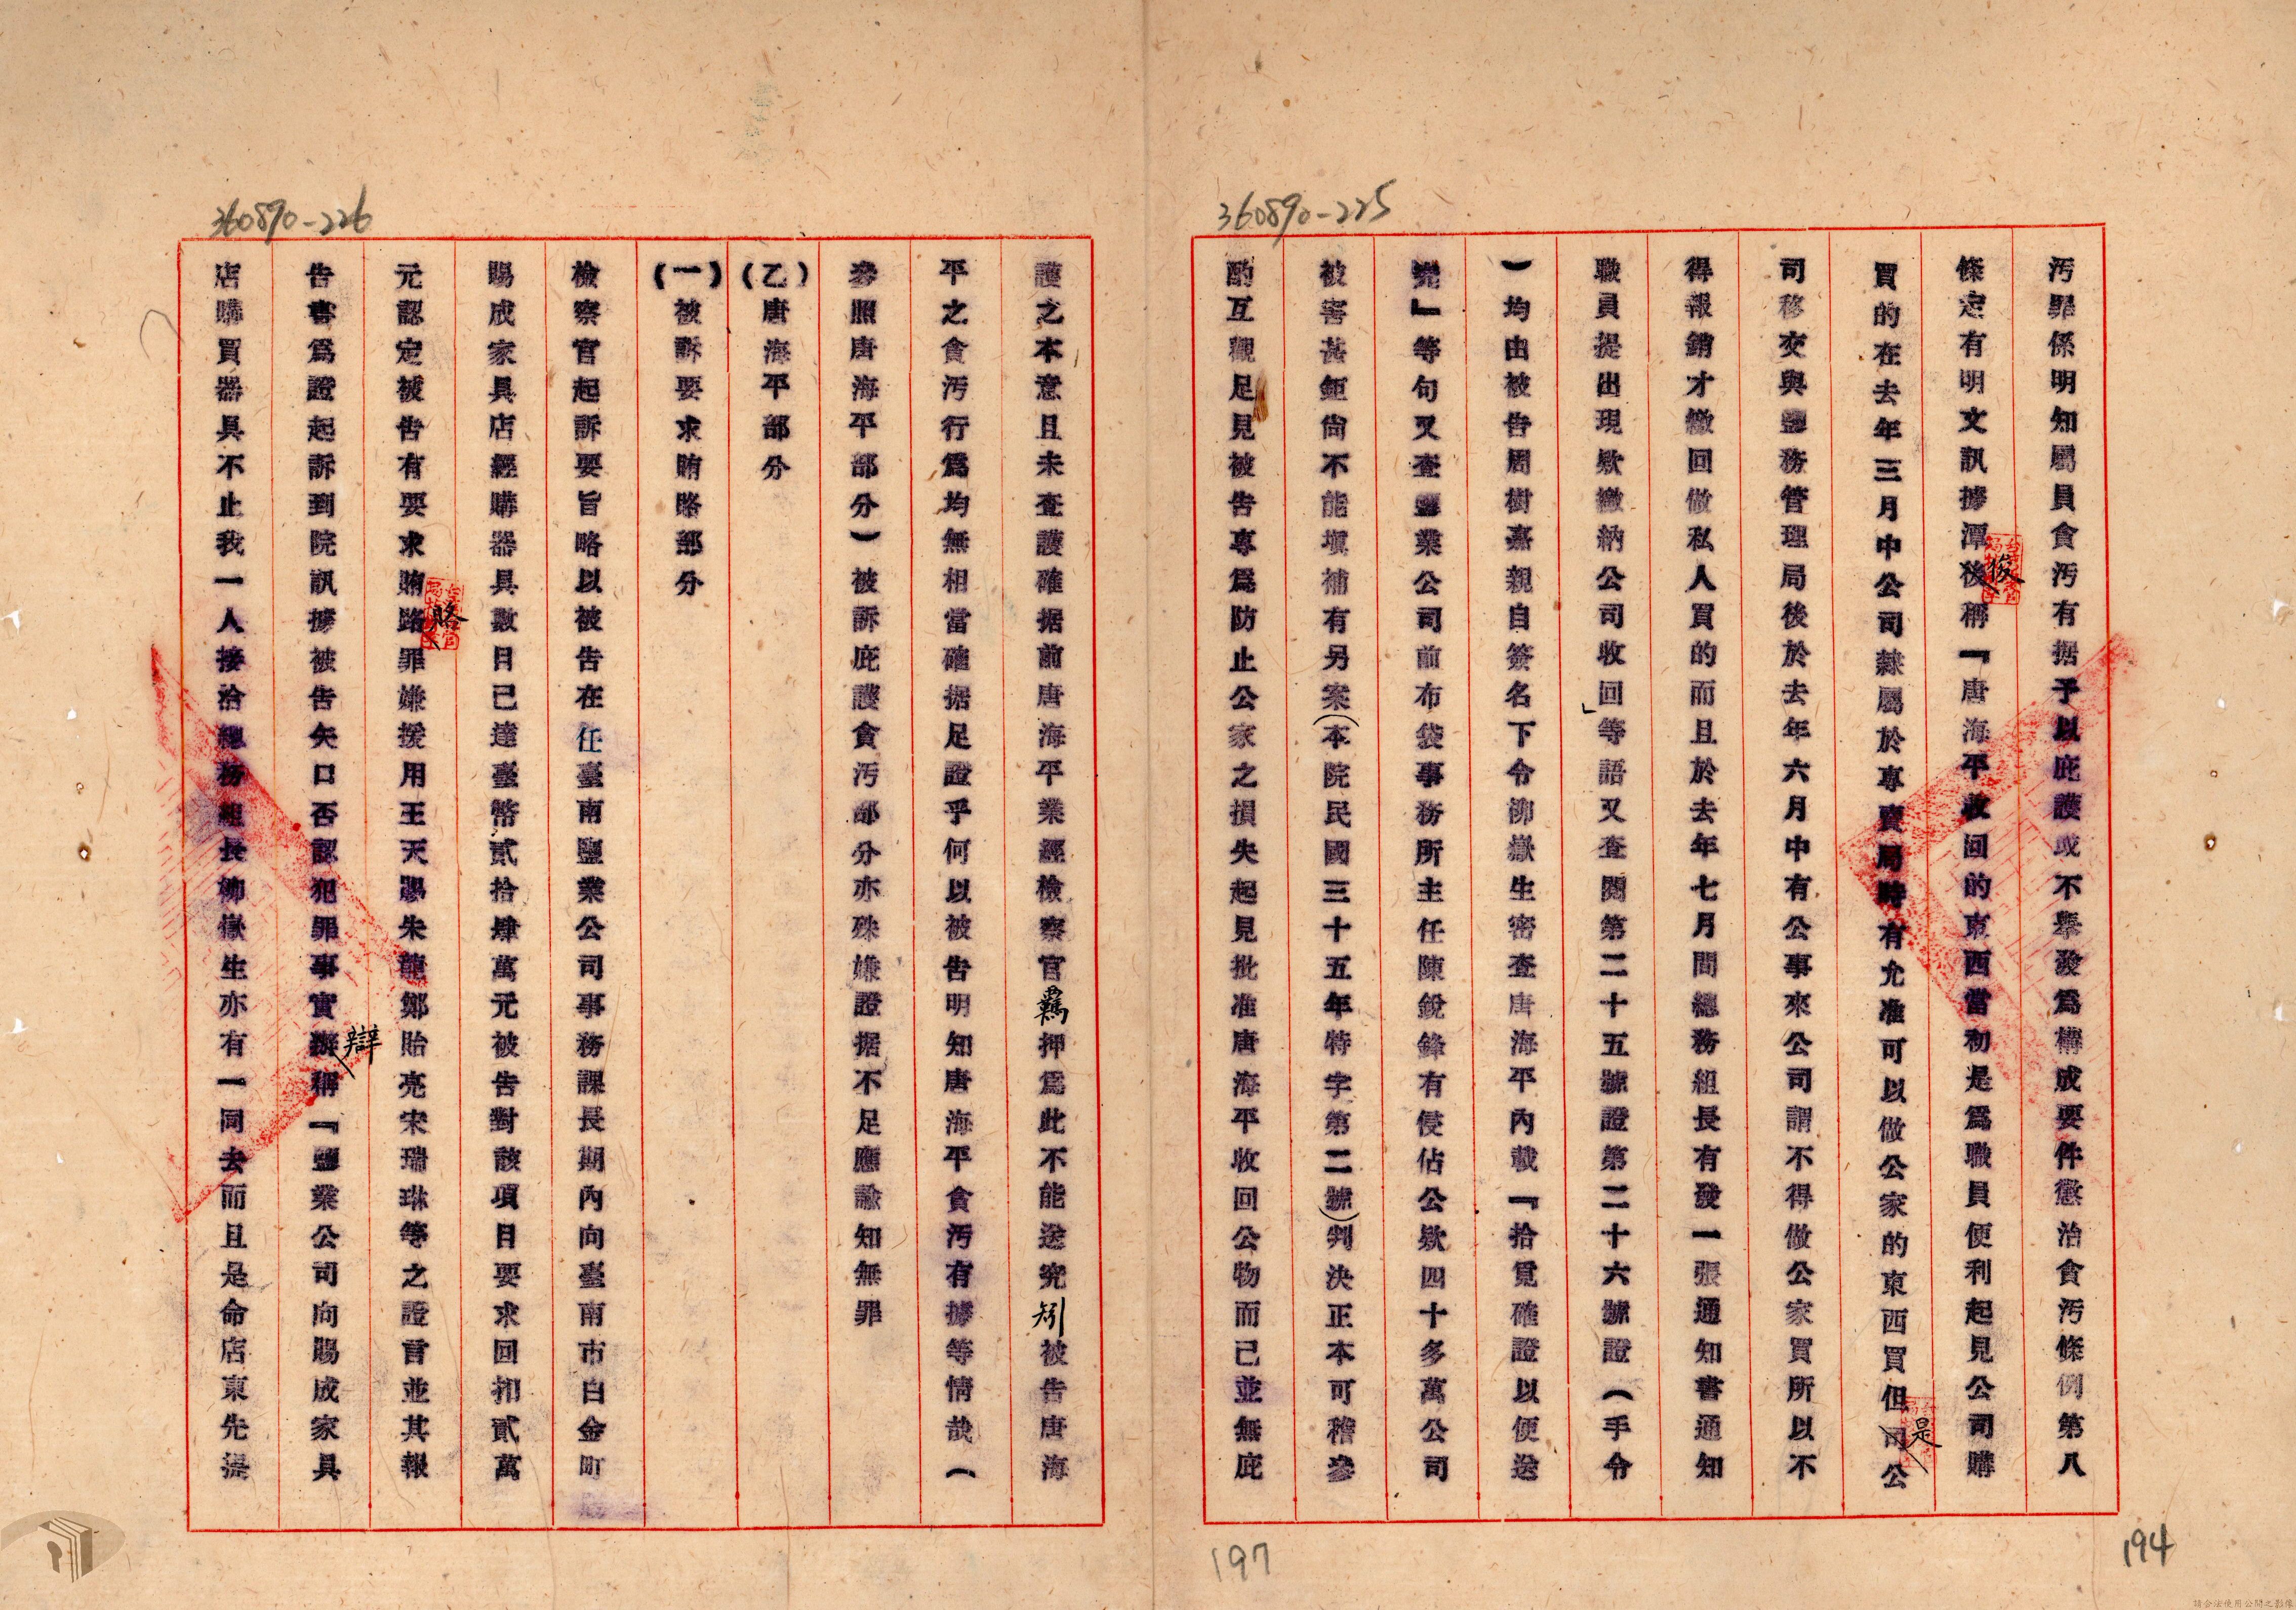 360890-225
汚罪係明知屬員貪汚有据予以庇護或不舉發爲構成要件懲治貪汚條例第八
條定有明文訊據潭後俊稱『唐海平收回的東西當初是爲職員便利起見公司購
買的在去年三月中公司隸屬於專賣局時有允准可以做公家的東西買但司是公
司移交與鹽務管理局後於去年六月中有公事來公司謂不得做公家買所以不
得報銷才繳回做私人買的而且於去年七月間總務組長有發一張通知書通知
職員提出現欵繳納公司收回」等語又查閱第二十五號證第二十六號證（手令
）均由被告周樹嘉親自簽名下令柳嶽生密查唐海平內載『拾覓確證以便送
究』等句又查鹽業公司前布袋事務所主任陳銳鋒有侵佔公欵四十多萬公司
被害甚鉅尙不能塡補有另案(本院民國三十五年特字第二號)判決正本可稽參
酌互觀足見被告專爲防止公家之損失起見批准唐海平收回公物而已並無庇
194
197
360890-226
護之本意且未查護確据前唐海平業經檢察官羈押爲此不能送究矧被告唐海
平之貪汚行爲均無相當確据足證乎何以被告明知唐海平貪汚有據等情哉（
參照唐海平部分）被訴庇護貪汚部分亦殊嫌證据不足應諭知無罪
(乙)唐海平部分
(一)被訴要求賄賂部分
檢察官起訴要旨略以被告在任臺南鹽業公司事務課長期內向臺南市白金町
賜成家具店經購器具數目已達臺幣貳拾肆萬元被告對該項目要求回扣貳萬
元認定被告有要求賄路賂罪嫌援用王天賜朱龍鄭貽亮宋瑞琳等之證言並其報
告書爲證起訴到院訊據被告矢口否認犯罪事實辯稱『鹽業公司向賜成家具
店購買器具不止我一人接洽總務組長柳嶽生亦有一同去而且是命店東先提
請合法使用公開之影像